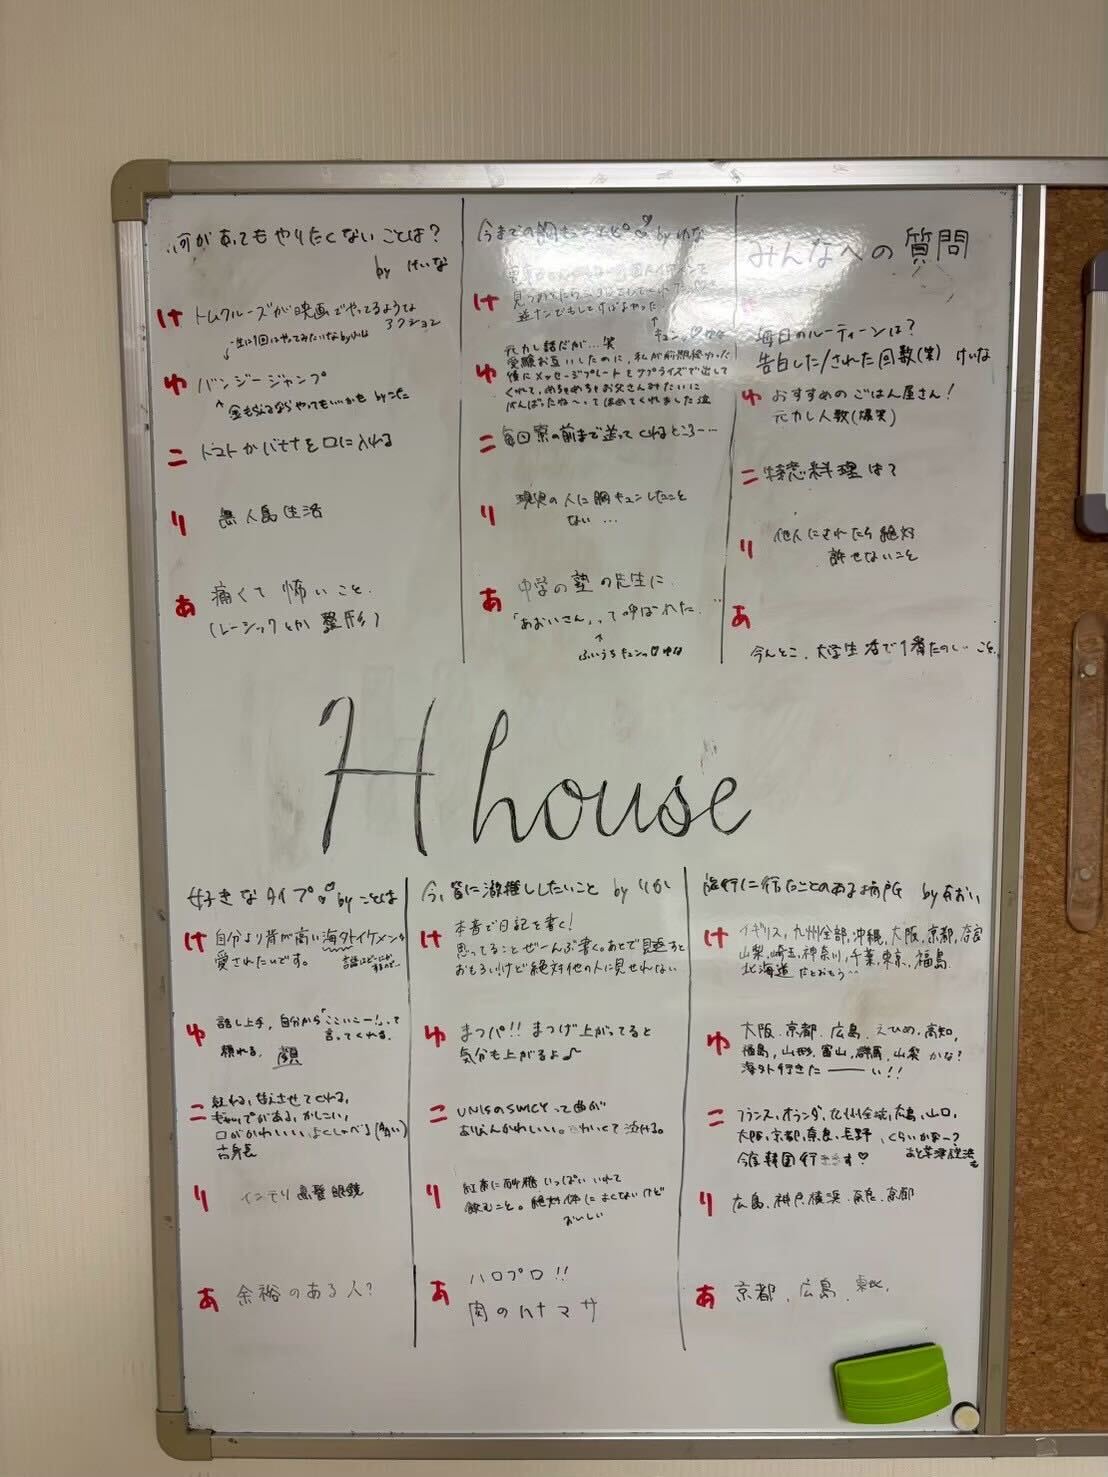 何があってもやりたくないことは?
by けいな
け トムクルーズが映画でやってるような
アクション
一生に1回はやってみたいな by
ゆ バンジージャンプ
金もらえるならやってもいいかも by こた
ニ トマトかバナナを口に入れる
り 無人島生活
あ 痛くて怖いこと
(レーシックとか整形)
今までの胸キュンエピ♡ by ゆな
け
逆ナンでもしてけばよかった
キュンッ♡ゆな
元カレ話だが…笑
受験お互いしたのに、私が前期終わった
ゆ 後にメッセージプレートをサプライズで出して
くれて、めちゃめちゃお父さんみたいに
がんばったね〜ってほめてくれました泣
ニ 毎回寮の前まで送ってくれるところ…
り 現実の人に胸キュンしたこと
ない…
あ 中学の塾の先生に
「あおいさん」って呼ばれた…
ふいうちキュンッ♡ゆな
みんなへの質問
毎日のルーティーンは?
告白した/された回数(笑) けいな
ゆ おすすめのごはん屋さん!
元カレ人数(爆笑)
ニ 得意料理は?
り 他人にされたら絶対
許せないこと
あ
今んとこ、大学生活で1番たのしいこと
H house
好きなタイプ♡ by ことは
け 自分より背が高い海外イケメンに
愛されたいです。
ゆ 話し上手、自分から「ここいこー!」って
言ってくれる、
頼れる、顔
ニ
ギャップがある、かしこい、
口がかわいい、よくしゃべる
高身長
り インモリ黒髪眼鏡
あ 余裕のある人?
今、皆に激推ししたいこと by りか
け 本音で日記を書く!
思ってることぜーんぶ書く。あとで見返すと
おもろい!けど絶対他の人に見せれない
ゆ まつパ!! まつげ上がってると
気分も上がるよ♪
ニ UNISのSWICYって曲が
ありえんかわいい。かわいくて泣ける。
り 紅茶に砂糖いっぱいいれて
飲むこと。絶対体によくないけど
おいしい
あ ハロプロ!!
肉のハナマサ
旅行に行ったことのある場所 by あおい
け イギリス、九州全部、沖縄、大阪、京都、奈良
山梨、埼玉、神奈川、千葉、東京、福島、
北海道 だとおもう…
ゆ 大阪、京都、広島、えひめ、高知、
福島、山形、富山、群馬、山梨 かな?
海外行きたーーい!!
ニ フランス、オランダ、九州全域、広島、山口、
大阪、京都、奈良、長野、くらいかなー?
今度韓国行きます♡
り 広島、神戸、横浜、奈良、京都
あ 京都、広島、東北、